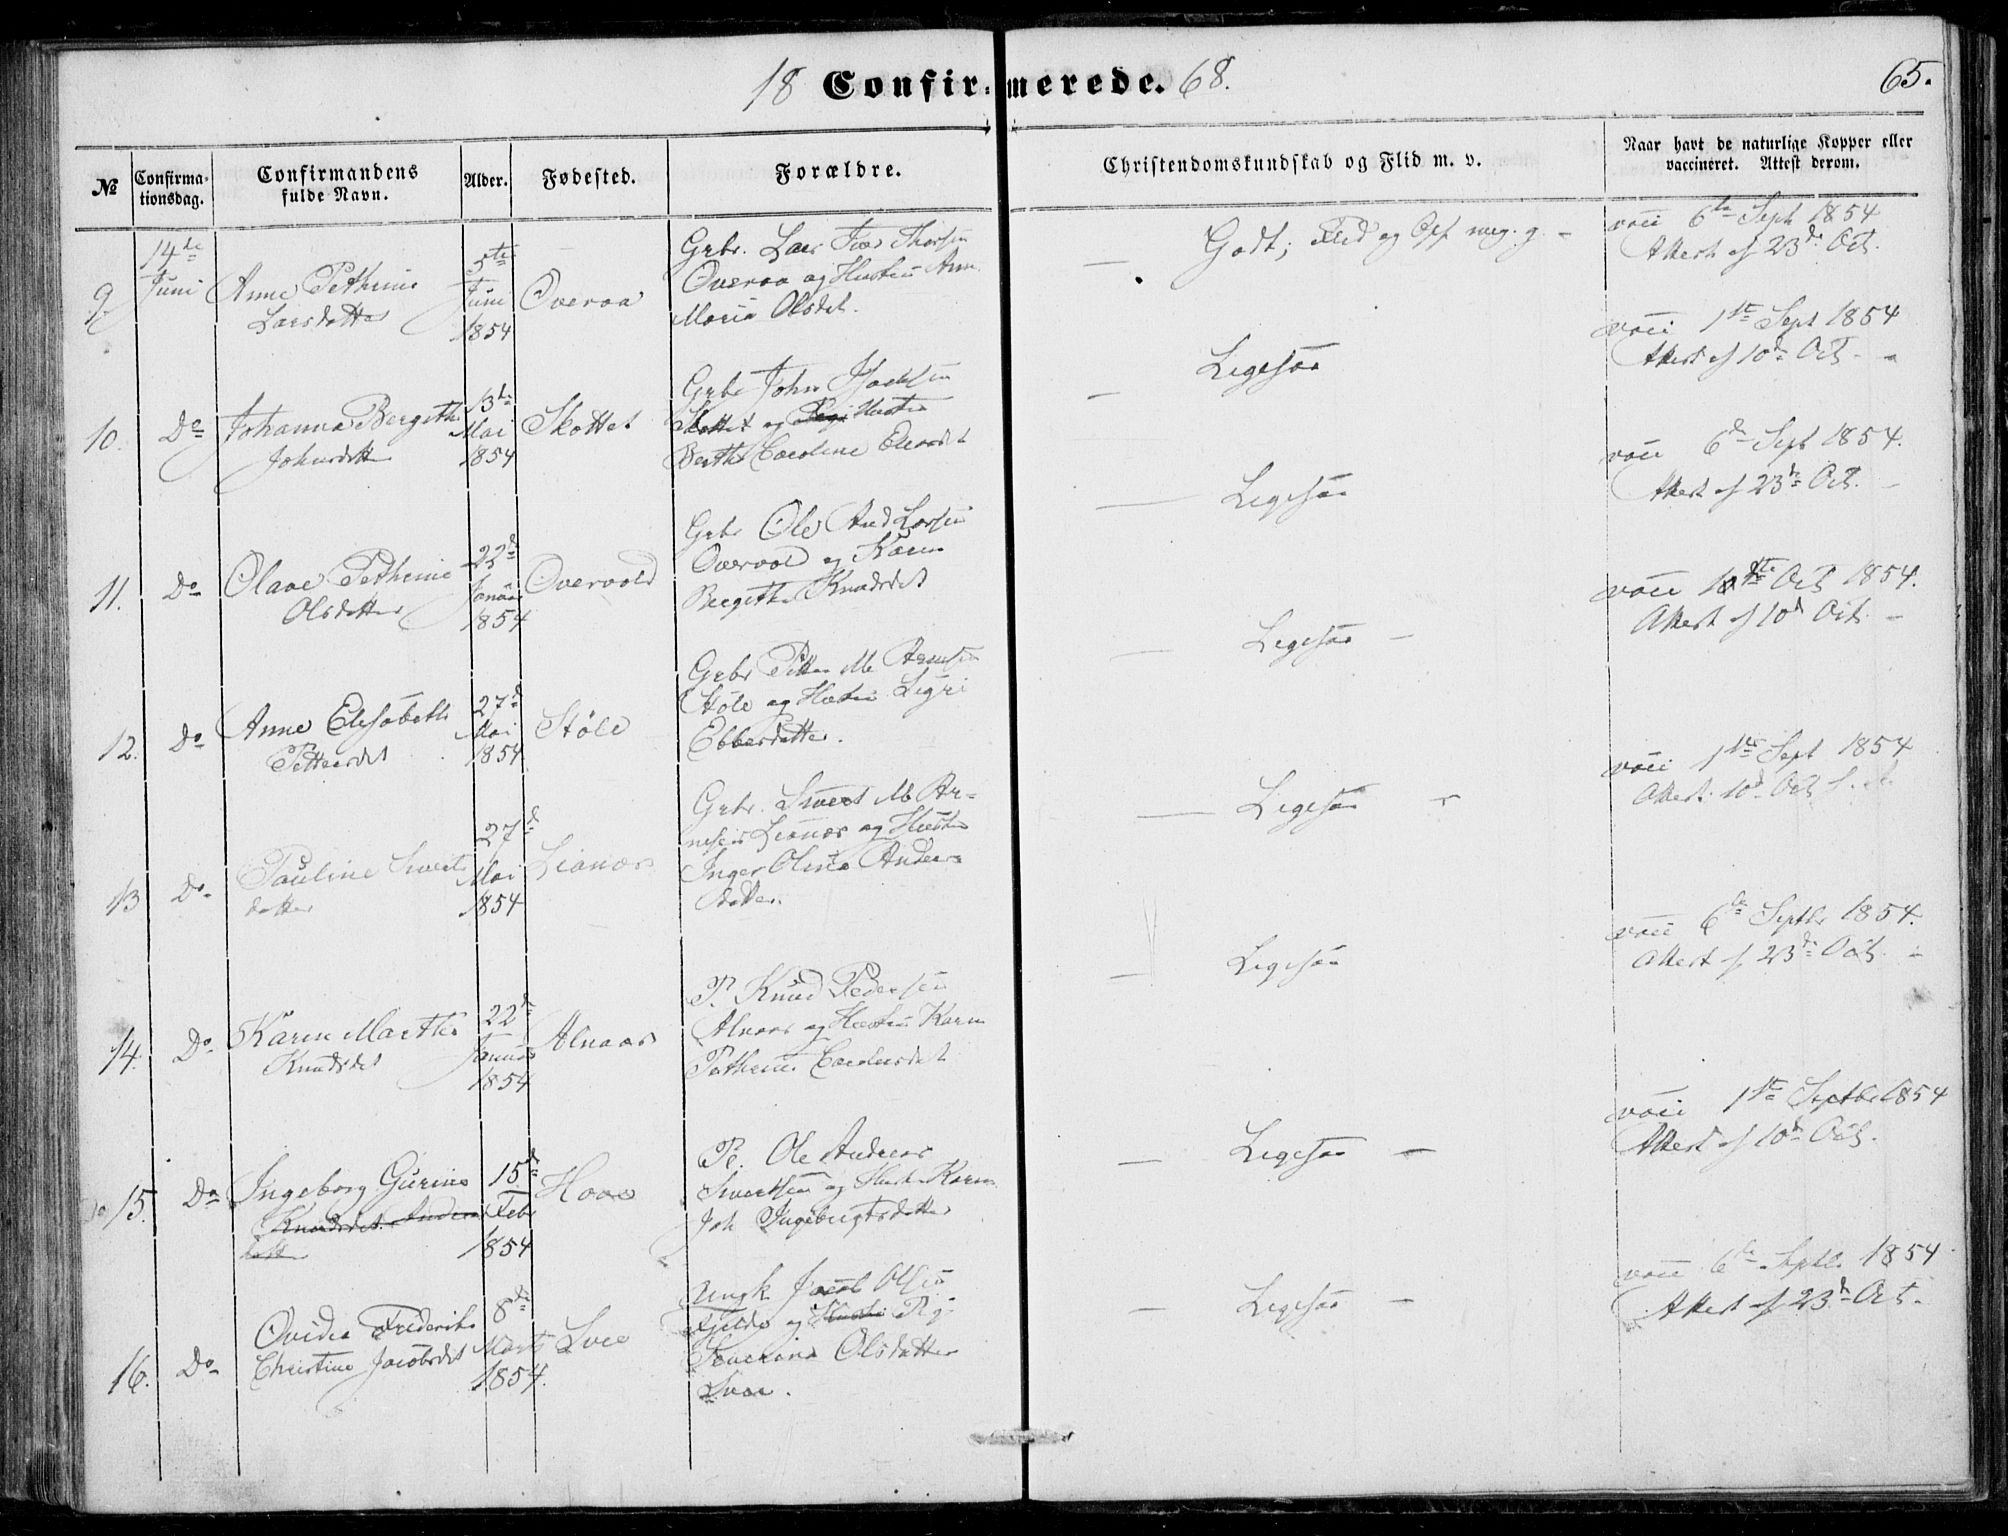 18 Confirmerede. 68.
65.
№
Confirma-
tionsdag.
Confirmandens
fulde Navn.
Alder.
Fødested.
Forældre.
Christendomskundskab og Flid m. v.
Naar havt de naturlige Kopper eller
vaccineret. Attest derom.
9.
14de
Juni
Anne Pethrine
Larsdatter
5te
Juni
1854
Overaa
Grbr. Lars Thorsen
Overaa og Hustru Ane
Maria Olsdt.
Godt; Flid og Opf meg. g.
vacc 6te Sept 1854
Attest af 23de Oct.
10.
Do
Johanna Bergithe
Johnsdtt
13de
Mai
1854
Skottet
Grbr John
Skottet og Hustru
Berthe Caroline
Ligesaa
vacc 1ste Sept 1854
Attest af 10de Oct.
11.
Do
Olave Pethrine
Olsdatter
22d
Januar
1854
Overvold
Grbr Ole And Larsen
Overvold og Karen
Bergithe Knudsdt
Ligesaa
vacc 6te Sept 1854.
Attest af 23de Oct.
12.
Do
Anne Elisabeth
Pettersdt
27d
Mai
1854
Støle
Grbr Petter M
Støle og Hustru
Ebbesdatter.
Ligesaa
vacc Oct 1854.
Attest af 10d Oct.
13
Do
Pauline Sivert
datter
27d
Mai
1854
Lianæs
Grbr. Sivert M Ar-
nesen Lianæs og Hustru
Inger Oline Anders
datter.
Ligesaa
vacc 1ste Sept 1854
Attest 10d Oct
14.
Do
Karen Marthe
Knudsdt
22d
Januar
1854
Alnæs
P. Knud Pedersen
Alnæs og Hustru Karen
Pethrine
Ligesaa
vacc 6te Septbr 1854.
Attest af 23de Oct.
15.
Do
Ingeborg Gurine
Knudsdt. Anders
datt
15d
Febr
1854
Hove
P. Ole Andreas
Sivertsen og Hustru Karen
Joh Ingebrigtsdatter
Ligesaa
vacc 1ste Septbr 1854
Attest af 10de Oct.
16.
Do
Ovidia Frederike
Christine Jacobsdt
8de
Marts
1854.
Ungk Jacob Olsen
og Hustru Pig
Olsdatter
Ligesaa
vacc 6te Septbr 1854
Attest af 23de Oct.